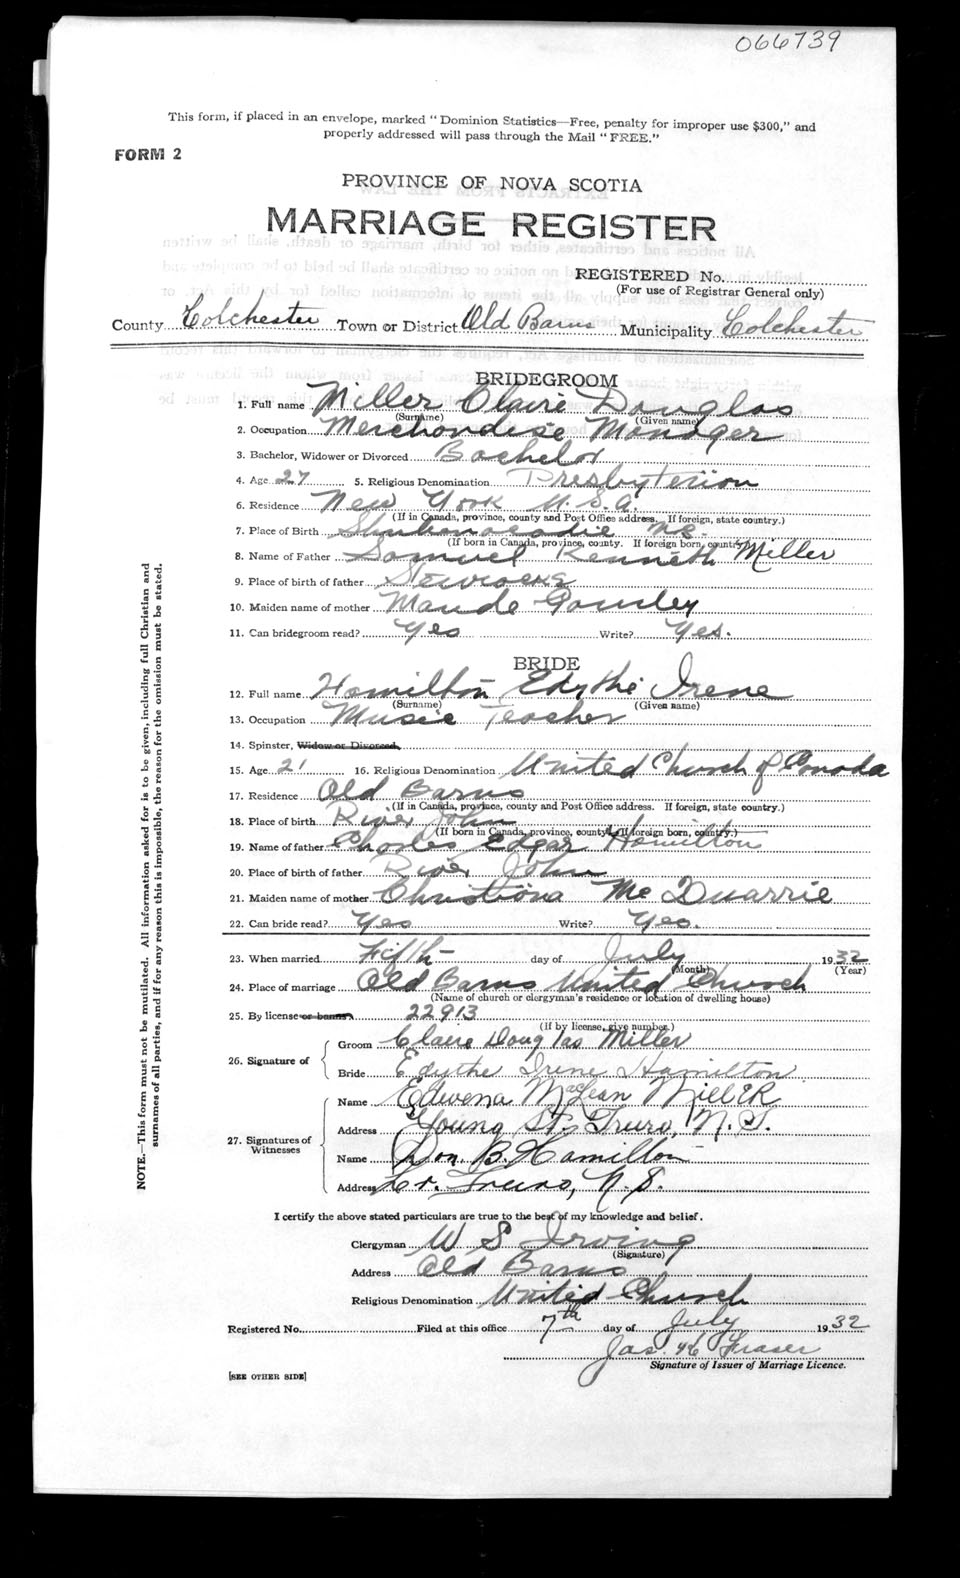 066739
This form, if placed in an envelope, marked "Dominion Statistics—Free, penalty for improper use $300," and
properly addressed will pass through the Mail "FREE."
FORM 2
PROVINCE OF NOVA SCOTIA
MARRIAGE REGISTER
REGISTERED No.
(For use of Registrar General only)
County Colchester Town or District Old Barns Municipality Colchester
BRIDEGROOM
1. Full name Miller Claire Douglas
(Surname) (Given name)
2. Occupation Merchandise Manager
3. Bachelor, Widower or Divorced Bachelor
4. Age 27 5. Religious Denomination Presbyterian
6. Residence New York U.S.A.
(If in Canada, province, county and Post Office address. If foreign, state country.)
7. Place of Birth Shubenacadie N.S.
(If born in Canada, province, county. If foreign born, country)
8. Name of Father Samuel Kenneth Miller
9. Place of birth of father
10. Maiden name of mother Maude
11. Can bridegroom read? Yes Write? Yes.
BRIDE
12. Full name Hamilton Edythe Irene
(Surname) (Given name)
13. Occupation Music Teacher
14. Spinster, Widow or Divorced
15. Age 21 16. Religious Denomination United Church of Canada
17. Residence Old Barns
(If in Canada, province, county and Post Office address. If foreign, state country.)
18. Place of birth River John
(If born in Canada, province, county. If foreign born, country.)
19. Name of father Charles Edgar Hamilton
20. Place of birth of father River John
21. Maiden name of mother Christiana Mc Quarrie
22. Can bride read? Yes Write? Yes.
23. When married Fifth day of July 1932
(Month) (Year)
24. Place of marriage Old Barns United Church
(Name of church or clergyman's residence or location of dwelling house)
25. By license or banns 22913
(If by license, give number.)
26. Signature of Groom Claire Douglas Miller
Bride Edythe Irene Hamilton
27. Signatures of Witnesses
Name Edwena MacLean Miller
Address Young St. Truro, N.S.
Name Don. B. Hamilton
Address Lr. Truro, N.S.
I certify the above stated particulars are true to the best of my knowledge and belief.
Clergyman W S Irving
(Signature)
Address Old Barns
Religious Denomination United Church
Registered No. Filed at this office 7th day of July 1932
Jas. Fraser
Signature of Issuer of Marriage Licence.
[SEE OTHER SIDE]
NOTE.—This form must not be mutilated. All information asked for is to be given, including full Christian and
surnames of all parties, and if for any reason this is impossible, the reason for the omission must be stated.